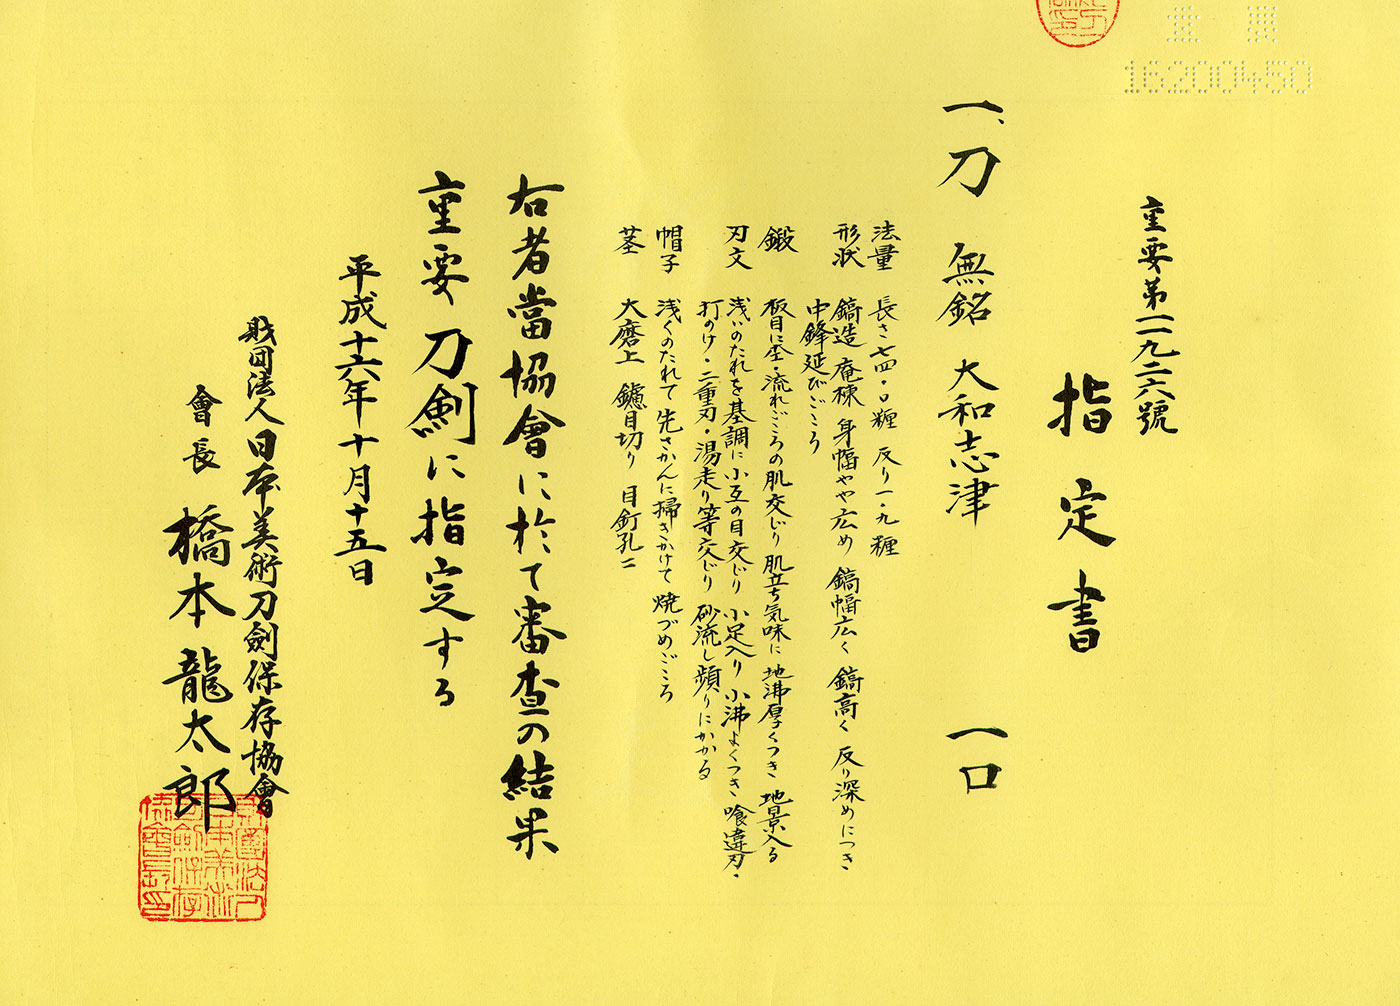 16200450
重要第一一九二六號
指定書
一、刀 無銘 大和志津 一口
法量 長さ七四・〇糎 反り一・九糎
形状 鎬造 庵棟 身幅やや広め 鎬幅広く 鎬高く 反り深めにつき
中鋒延びごころ
鍛 板目に杢・流れごころの肌交じり 肌立ち気味に 地沸厚くつき 地景入る
刃文 浅いのたれを基調に 小互の目交じり 小足入り 小沸よくつき 喰違刃・
打のけ・二重刃・湯走り等交じり 砂流し頻りにかかる
帽子 浅くのたれて 先さかんに掃きかけて 焼づめごころ
茎 大磨上 鑢目切り 目釘孔二
右者當協會に於て審査の結果
重要刀剣に指定する
平成十六年十月十五日
財団法人日本美術刀劍保存協會
會長 橋本龍太郎